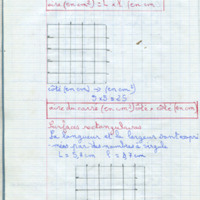 aire (en cm²) = L × l (en cm
côté (en cm) → (en cm²)
5 × 5 = 25
aire du carré (en cm²) côté × côté (en cm
Surfaces rectangulaires
La longueur et la largeur sont expri
mées par des nombres à virgule